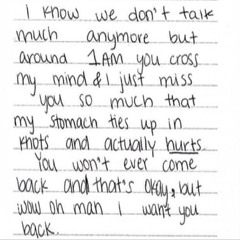 I know we don't talk
much anymore but
around 1AM you cross
my mind & I just miss
you so much that
my stomach ties up in
knots and actually hurts.
You won't ever come
back and that's okay, but
wow oh man I want you
back.